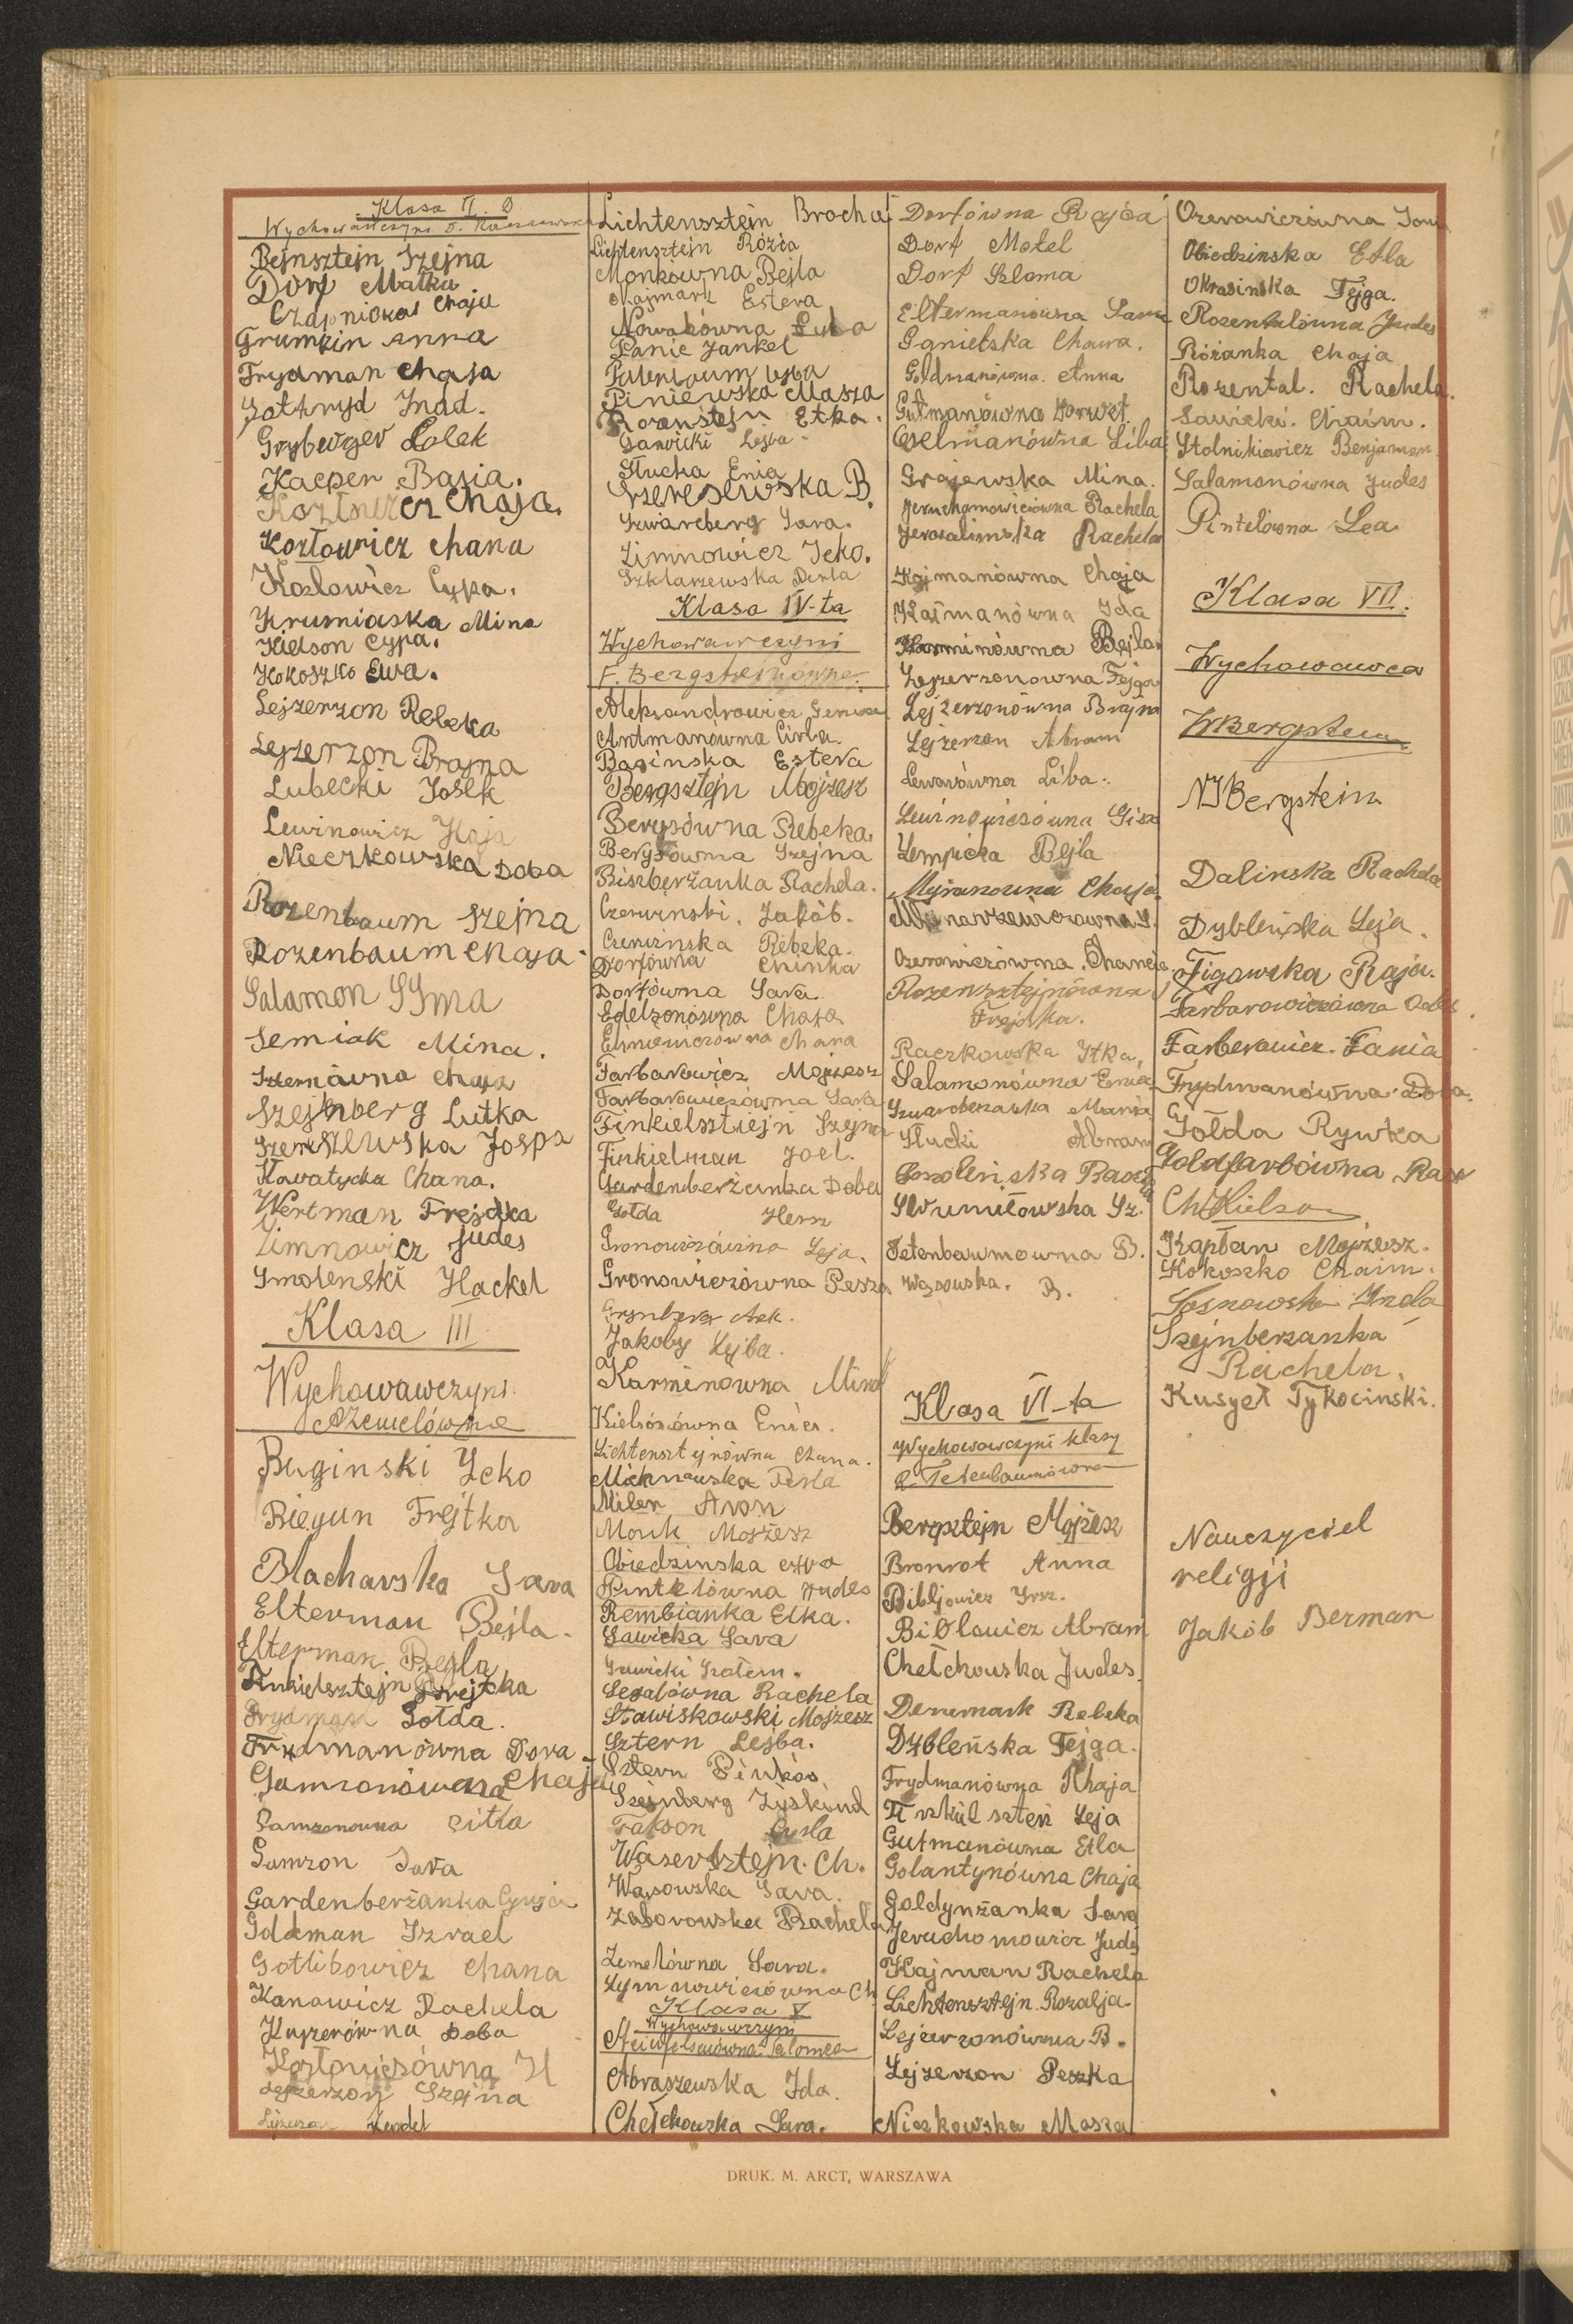 Klasa II. B
Wychowawczyni
Bejnsztejn Szejna
Dorf Matka
Czapnicka Chaja
Grumkin Anna
Frydman Chaja
Gothryd Inad.
Grybergier Lolek
Kacper Basia.
Chaja.
Kozłowicz Chana
Kozlowicz Cypa.
Krumiaska Mina
Kielson Cypa.
Kokoszko Ewa.
Lejzerzon Rebeka
Lejzerzon Brajna
Lubecki Josek
Lewinowicz Chaja
Nieczkowska Doba
Rozenbaum Szejna
Rozenbaum Chaja
Salamon
Semiak Mina.
Szternówna Chaja
Szejnberg Lutka
Szereszewska Jospa
Kawatycka Chana.
Wertman Frejdka
Zimnowicz Judes
Smolenski Hackel
Klasa III
Wychowawczyni
A. Zemelówna
Baginski Icko
Biegun Frejtka
Blacharska Sara
Elterman Bejla.
Elterman Bejla
Finkielsztejn Frejtka
Frydman Gołda.
Frydmanówna Dora
Gamzonówna Chaja
Gamzonówna Citla
Gamzon Sara
Gardenberżanka
Goldman Izrael
Gotlibowicz Chana
Kanowicz Rachela
Kuperówna Doba
Kozłowiczówna H
Lejzerzon Szejna
Lejzerzon Kendel
Lichtensztejn Brocha
Lichtensztejn Rózia
Monkowna Bejla
Najmark Estera
Nowakówna Luba
Panic Jankel
Patenbaum
Piniewska Masza
Rozensztejn Etka.
Sawicki Lejba
Słucka Enia
Szereszewska B.
Szwarcberg Sara.
Zimnowicz Icko.
Szklarzewska Perla
Klasa IV-ta
Wychowawczyni
F. Bergsteinówna.
Aleksandrowicz Genia
Antmanówna Cirla.
Baginska Estera
Bergsztejn Mojżesz
Berysówna Rebeka.
Berysówna Szejna
Biszberżanka Rachela.
Czerwinski. Jakób.
Czerwińska Rebeka.
Dorfówna Chinka
Dorfówna Sara
Edelzonówna Chaja
Chana
Farbarowicz Mojżesz
Farbarowiczówna Sara
Finkielsztiejn Szejna
Finkielman Joel.
Gardenberżanka Doba
Gołda Hersz
Gronowiczówna Leja.
Gronowiczówna Pesza
Grynberg Ark.
Jakoby Lejba.
Karminówna Mina
Kielsonówna Enia.
Lichtensztejnówna Chana.
Michnowska Perla
Miler Aron
Monk Mojżesz
Obiedzinska
Pintelówna Hudes
Rembianka Elka.
Sawicka Sara
Sawicki Szołem.
Segałówna Rachela
Stawiskowski Mojżesz
Sztern Lejba.
Sztern Pinkos.
Szejnberg Zyskind
Fakson Perla
Wasersztejn. Ch.
Wąsowska Sara.
Zaborowska Rachela
Zemelówna Sara.
Zymnowiczówna Ch
Klasa V
Wychowawczyni
Salomea
Abraszewska Ida.
Chełchowska Sara.
Dorfówna Rajca
Dorf Motel
Dorf Szloma
Eltermanówna Sara
Ganielska Chawa.
Goldmanówna. Anna
Gutmanówna
Gzelmanówna Liba
Grajewska Mina.
Jeruchomowiczówna Rachela
Jerozalimska Rachela
Kajmanówna Chaja
Kajmanówna Ida
Karminówna Bejla
Lejzerzonowna Fejga
Lejzerzonówna Brajna
Lejzerzon Abram
Lewarówna Liba.
Lewinowiczówna Gisza
Lempicka Bejla
Mejranowna Chaja.
Ozerowiczówna. Chanela.
Rozensztejnówna
Frejdka.
Raczkowska Itka.
Salamonówna Enia
Szwarcberżanka Mania
Słucki Abram
Smoleńska Basza
Strumiłowska Sz.
Tetenbaumowna B.
Wąsowska. B.
Klasa VI-ta
Wychowawczyni klasy
R. Tetenbaumówna
Bergsztejn Mojżesz
Bronrot Anna
Bibljowicz Irsz.
Biblowicz Abram
Chełchowska Judes.
Denemark Rebeka
Dybleńska Fejga.
Frydmanówna Chaja
Finkielsztein Leja
Gutmanówna Etla
Golantynówna Chaja
Goldynżanka Sara
Jeruchomowicz Judes
Kajman Rachela
Lichtensztejn Rozalja.
Lejzerzonówna B.
Lejzerzon Peszka
Niczkowska Masza
Ozerowiczówna Sonia
Obiedzinska Etla
Okrasinska Fejga.
Rozentalówna Judes
Różanka Chaja
Rozental. Rachela.
Sawicki. Chaim.
Stolnikiewicz Benjamen
Salamonówna Judes
Pintelówna Lea
Klasa VII.
Wychowawca
W Bergstein
NJ Bergstein
Dalinska Rachela
Dybleńska Leja.
Figowska Raja.
Farbarowiczówna
Farberowicz. Fania
Frydmanówna. Doba.
Gołda Rywka
Goldfarbówna
Ch Kielson
Kapłan Mojżesz.
Kokoszko Chaim.
Sosnowska
Szejnberzanka
Rachela.
Kusyeł Tykocinski.
Nauczyciel
religji
Jakób Berman
DRUK. M. ARCT, WARSZAWA